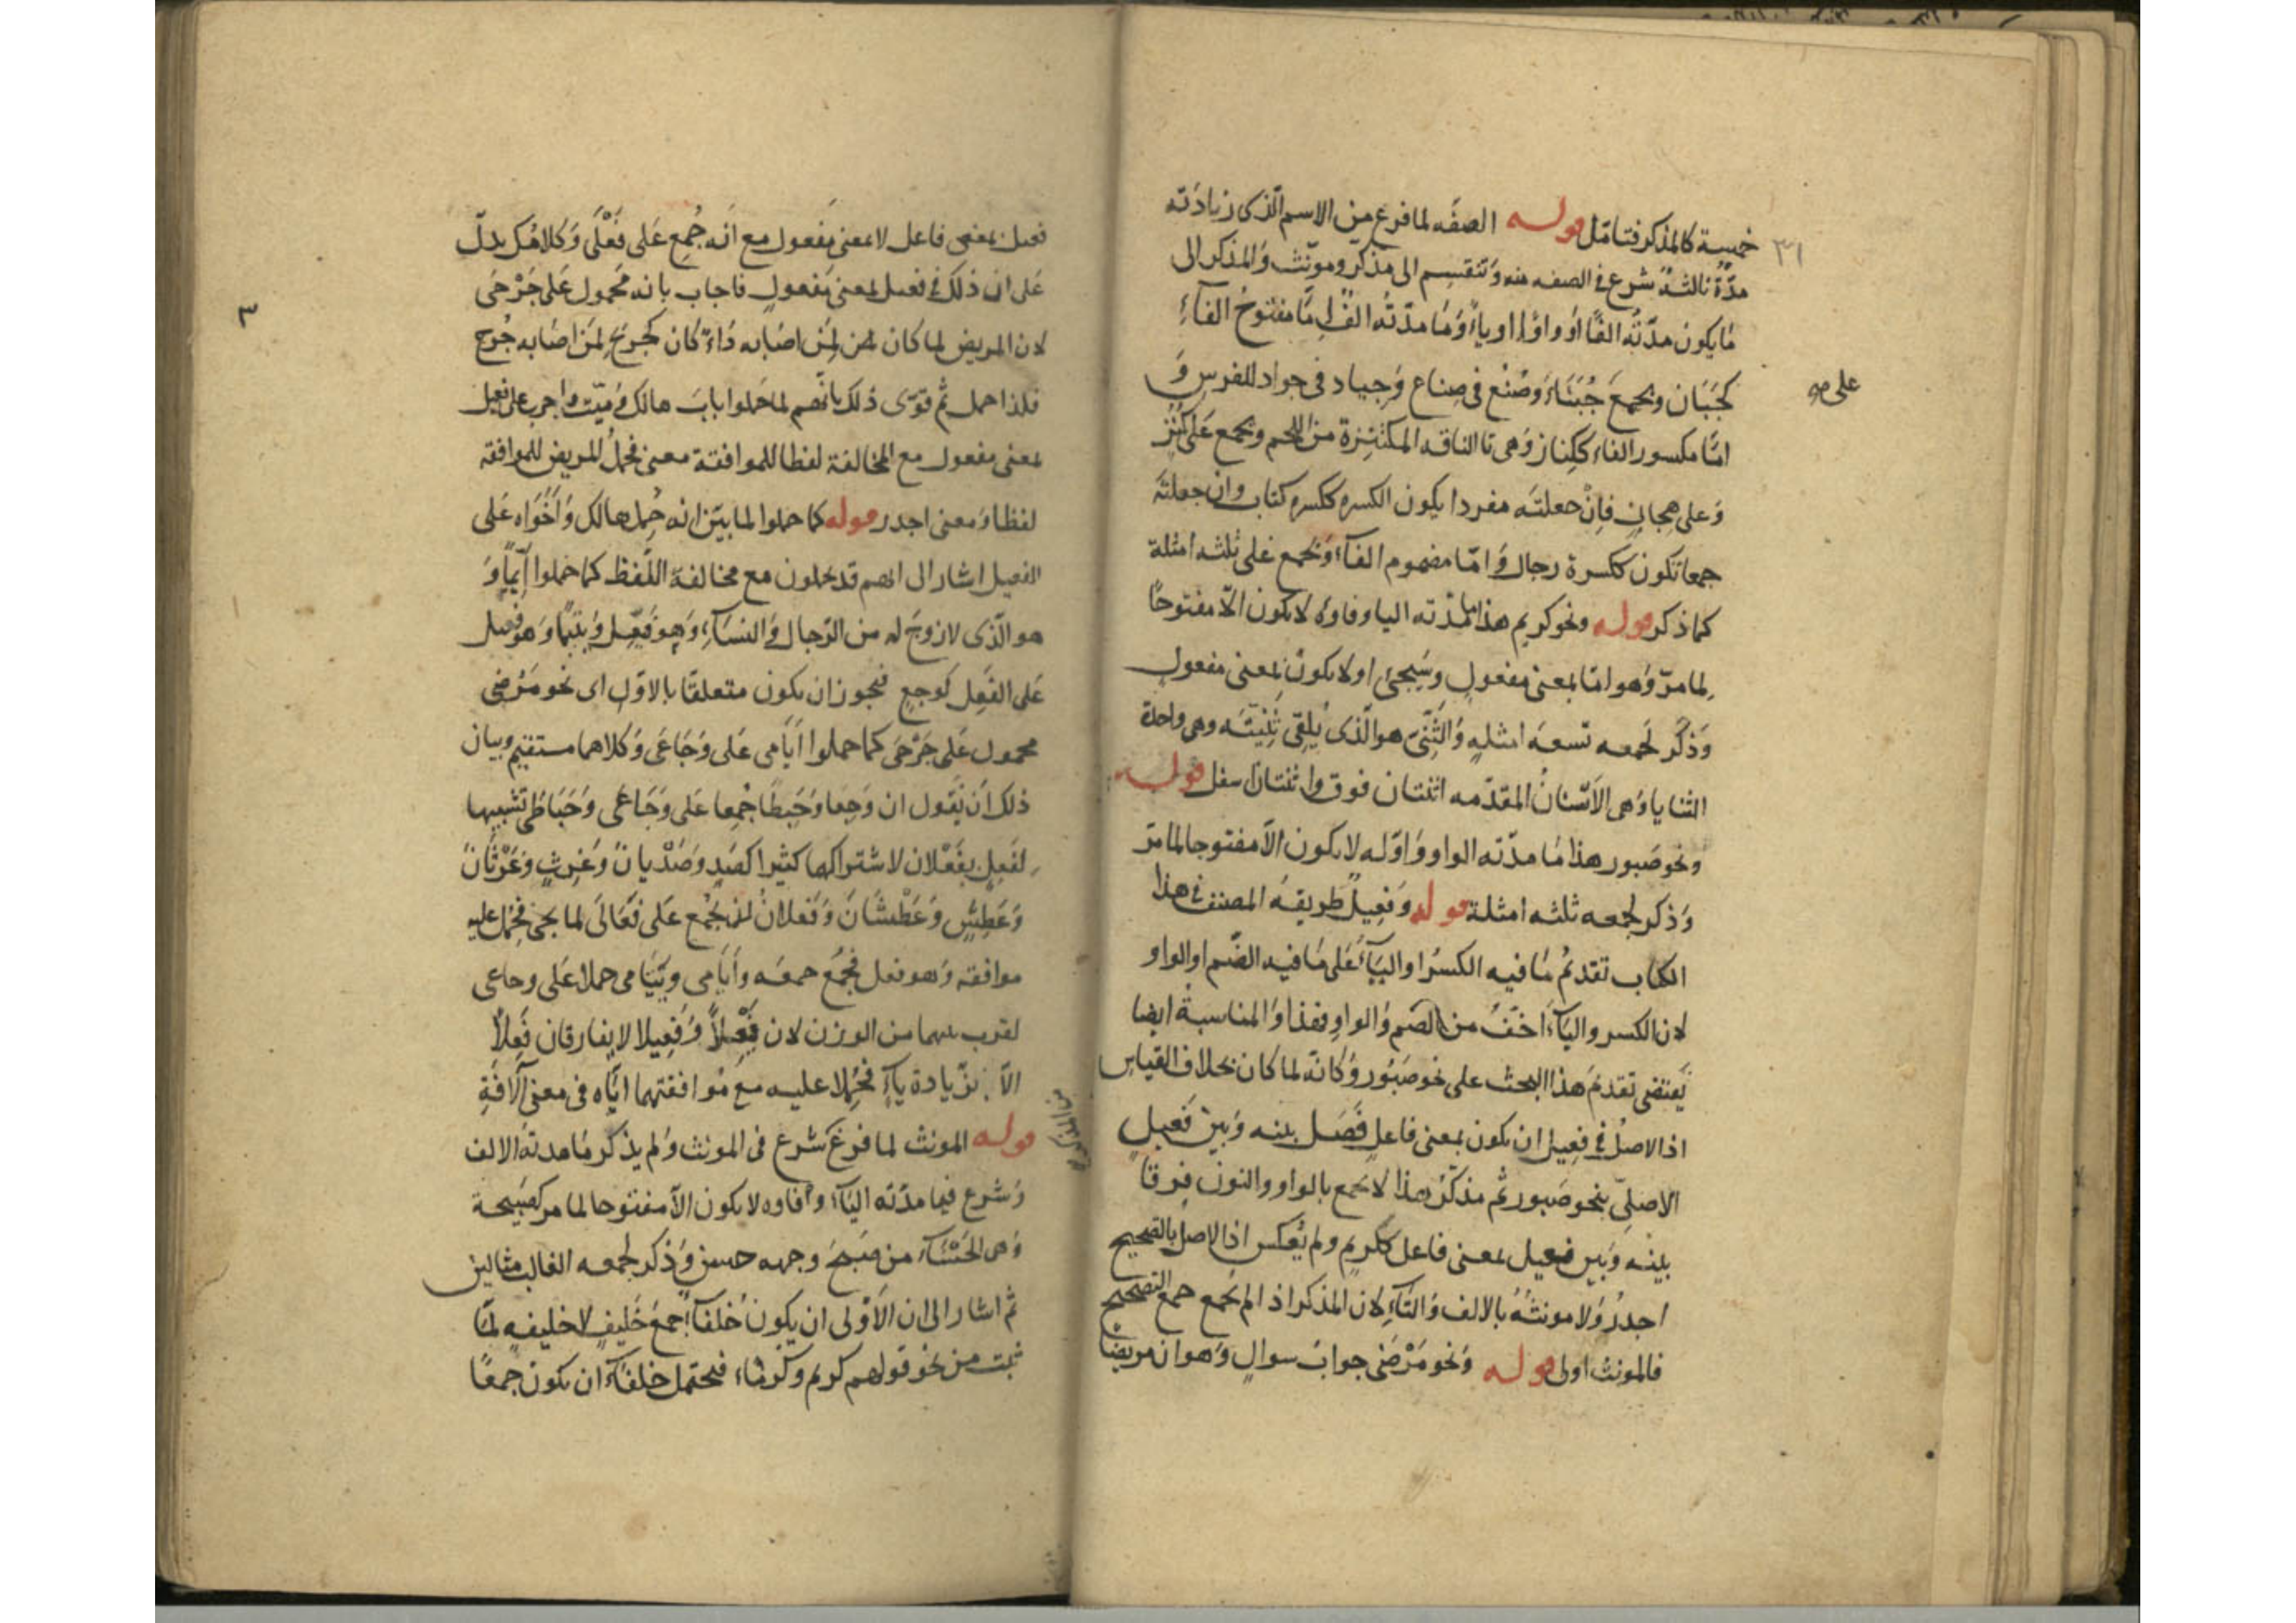 خمسة كالمذكر فتامّل قوله الصفَه لما فرغ من الاسم الّذى زيادَته
مدّةٌ ثالثةٌ شرع فى الصفه منه وَتنقسم الى مذكر ومونّث وَالمذكر الى
مَا يكون مدّتُه الفًا اوْ واوًا او ياءً وَمَا مدّتُه الفٌ امّا مفتوحُ الفآءِ
كجَبَان ويجمع جُبَنَاءَ وَصُنُع فى صِناع وَجياد فى جواد للفرس وَ
امَّا مكسور الفاء ككِناز وَهى الناقه المكتنِزة من اللحم ويجمع عَلى كُنُز
وَعلى هِجانٍ فاِنْ جعلتَه مفردا يكون الكسره ككسره كتاب وان جعلتَه
جمعا تكون ككسرة رجال وَ امّا مضموم الفآء وَيجمع على ثلثه امثلة
كما ذكر قوله ونحو كريم هذا ما مدّته اليا وفاوُه لا يكون الّا مفتوحًا
لما مرّ وَهو امّا بمعنى مفعولٍ وسَيجئ او لا يكون بمعنى مفعولٍ
وَذكر لجمعه تسعَه امثلهٍ وَالثَّنِىّ هو الّذى يُلقى ثَنِيّتَه وهى واحدة
الثنايا وَهى الاَسْنانُ المقدّمه اثنتان فوق واثنتان اسفل قوله
ونحو صَبور هذا مَا مدّته الواو وَاوّله لا يكون الاّ مفتوحا لما مرّ
وَذكر لجمعه ثلثه امثلة قوله وَفعِيلٌ طريقهُ المصنف فى هذا
الكتاب تقدمُ مَا فيه الكسرُ او اليآءُ عَلى مَا فيه الضّم او الواو
لان الكسر واليآءَ اخفُّ من الضم وَالواوِ فهذا وَالمناسبةُ ايضا
يَقتضى تقدمَ هذا البحث على نحو صَبُور وَكانّه لما كان بخلاف القياسِ
اذا الاصلُ فى فعِيل ان يكون بمعنى فاعلٍ فَصَل بينه وَبين فَعيلٍ
الاصلىّ بنحو صَبور ثم مذكّرُ هذا لا يجمع بالواو والنون فرقًا
بينه وَبين فعيل بمعنى فاعل ككريم ولم يُعكس اذ الاصل بالصحيح
اجدرُ وَلا مونثُهُ بالالف وَالتآءِ لان المذكر اذ الم يُجمع جمع التصحيح
فالمونث اولى قوله وَنحو مَرْضَى جوابُ سوال وَهو ان مريضا
على صه
٣١
فعيل بمعنى فاعل لا بمعنى مَفعول مع انّه جُمِع عَلى فَعْلَى وَكلامُك يدلّ
عَلى ان ذلك فى فعيل بمعنى مَفعولٍ فاجاب بانه مَحمول عَلى جَرْحَى
لان المريض لما كان لمن اصَابه دَاءٌ كان كجريح لمن اصَابه جُرح
فلذا حمل ثم قوّى ذلك بانَّهم لما حَملوا بابَ هالك وَمَيّت واجرب على فعيل
بمعنى مفعول مع المخالفة لفظا للموافقة معنى فحملُ المريض للموافقه
لفظا وَمعنى اجدر قوله كما حملوا لما بيّن انه حُمِل هالك وَاَخَوَاه عَلى
الفعيل اشار الى انهم قد يحملون مع مخالفة اللّفظ كما حَملوا اَيّمًا وَ
هو الّذى لا زوجَ له من الرّجال وَ النسَآءِ وَهو فَيعِل وَيَتِيمًا وَهو فعيل
عَلى الفَعِل كوجعٍ فيجوز ان يكون متعلقًا بالاوّل اى نحو مَرْضى
محمول عَلى جَرْحَى كما حملوا اَيَامى عَلى وَجَاعَى وَكلاهما مستقيم وبيان
ذلك اَن يَقول ان وَجِعًا وَحَبِطًا جُمِعا عَلى وَجَاعى وَحَبَاطَى تشبيها
لفَعِلٍ بفَعْلان لاشتراكهما كثيرا كصَدٍ وَصَدْيانَ وَغَرِثٍ وَغَرْثَانَ
وَعَطِشٍ وَعَطْشَانَ وَفَعلانُ يُجْمع عَلى فَعَالَى لما يجئ فحُمل عليه
موافقه وَهو فعل فجُمُع جمعَه وَاَيَامى ويَتَامى حملا عَلى وجاعى
لقرب بينهما من الوزن لان فَيْعِلاً وَفَعِيلا لا يفارقان فَعِلاً
الاّ بزيادة ياءٍ فحُمِلا عليه مع مُوافقتهما ايّاه فى معنى الآفَةِ
قوله المونث لما فرغ شرع فى المونث وَلم يذكر مَا مدته الالف
وَشرع فيما مدّته اليَآء وَفاوه لا يكون الاّ مفتوحا لما مر كصَبِيحة
وَهى الحَسْنَآء من صَبُحَ وجهه حسن وَذكر لجمعه الغالب مثالين
ثم اشار الى ان الاَوْلى ان يكون خُلفآءُ جمعَ خَليفٍ لا خليفهٍ لمّا
ثبت من نحو قولهم كريم وكُرَمَاء فيحتمل خلفآء ان يكون جمعًا
٣